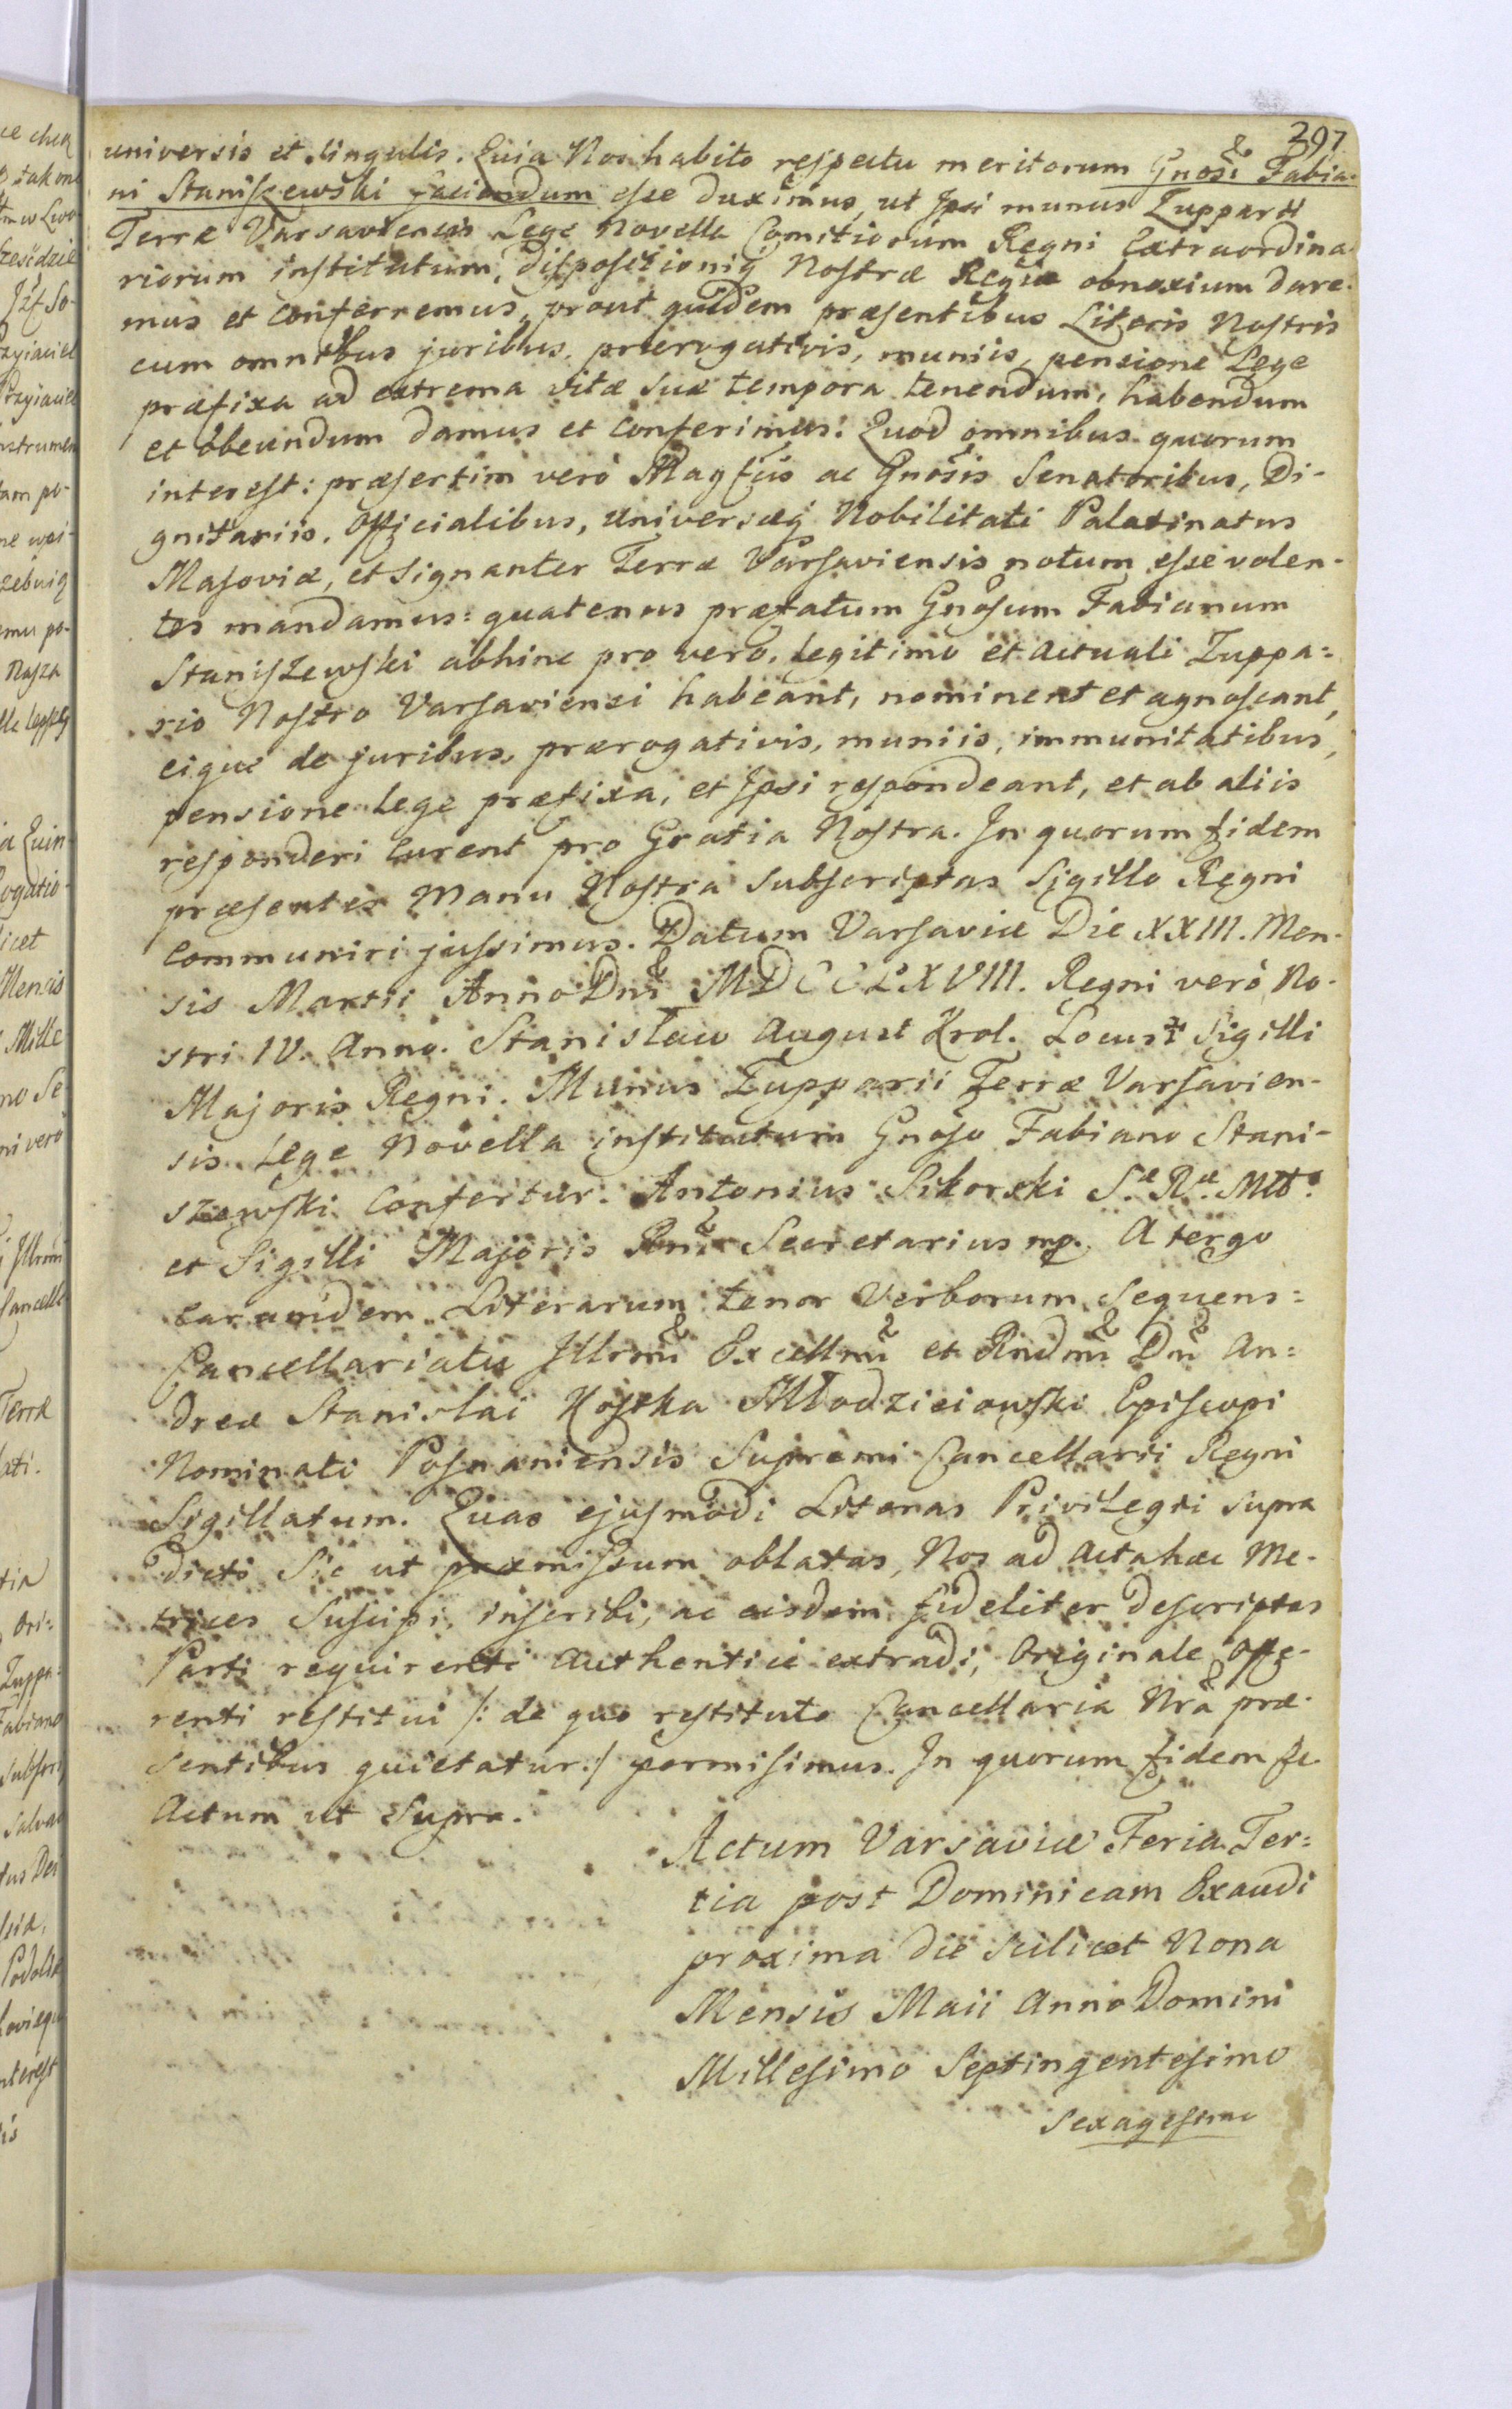 397
universis et singulis. Quia Nos habito respectu meritorum Gnosi Fabia-
ni Staniszewski faciendum esse duximus, ut Ipsi munus Zupparii
Terræ Varsaviensis Lege Novella Comitiorum Regni Extraordina-
riorum institutum, dispositioniq Nostræ Regiæ obnoxium dare-
mus et conferremus, prout quidem præsentibus Literis Nostris
cum omnibus juribus, prærogativis, muniis, pensione Lege
præfixa ad extrema vitæ suæ tempora tenendum, habendum
et obeundum damus et conferimus. Quod omnibus quorum
interest: præsertim verò Magfcis ac Gnosis Senatoribus, Di-
gnitariis, Officialibus, universæq Nobilitati Palatinatus
Masoviæ, et signanter Terræ Varsaviensis notum esse volen-
tes mandamus: quatenus præfatum Gnosum Fabianum
Staniszewski abhinc pro vero, legitimo et actuali Zuppa=
rio Nostro Varsaviensi habeant, nominent et agnoscant,
eique de juribus, prærogativis, muniis, immunitatibus,
pensione Lege præfixa, et Ipsi respondeant, et ab aliis
responderi curent pro Gratia Nostra. In quorum fidem
præsentes Manu Nostra subscriptas Sigillo Regni
communiri jussimus. Datum Varsaviæ Die XXIII. Men-
sis Martii Anno Dni MDCCLXVIII. Regni verò No-
stri IV. Anno. Stanisław August Krol. Locus Sigilli
Majoris Regni. Munus Zupparii Terræ Varsavien-
sis Lege Novella institutum Gnoso Fabiano Stani-
szewski Confertur. Antonius Sikorski S.æ R.æ Mtt.s
et Sigilli Majoris Rni Secretarius mp. A tergo
earundem Literarum tenor Verborum Sequens=
Cancellariatu Illrmi Excellmi et Rndmi Dni An=
dreæ Stanislai Kostka Młodzieiowski Episcopi
Nominati Posnaniensis Supremi Cancellarii Regni
Sigillatum. Quas ejusmodi Literas Privilegii supra
dicti Sic ut præmissum oblatas, Nos ad Acta hæc Me-
trices Suscipi, inscribi, ac eisdem fideliter descriptas
Parti requirenti Authenticè extradi, Originale Offe-
renti restitui /: de quo restituto Cancellaria Nra præ-
sentibus quietatur :/ permisimus. In quorum fidem &c.
Actum ut Supra.
Actum Varsaviæ Feria Ter=
tia post Dominicam Exaudi
proxima die scilicet Nona
Mensis Maii Anno Domini
Millesimo Septingentesimo
Sexagesimo